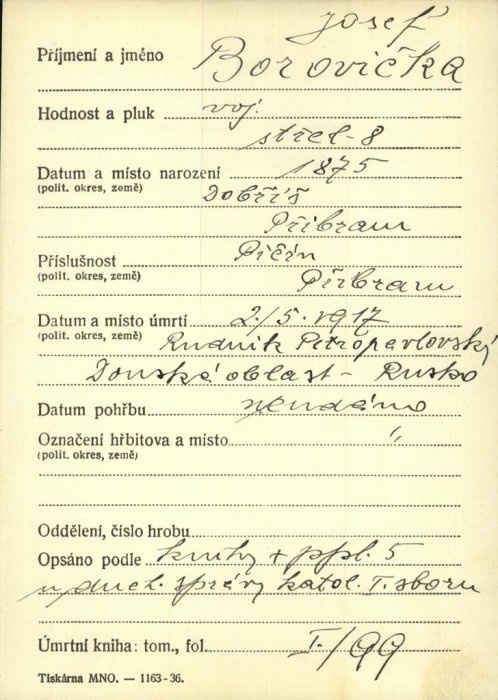 Josef
Příjmení a jméno Borovička
Hodnost a pluk voj.
střel-8
Datum a místo narození 1875
(polit. okres, země) Dobříš
Příbram
Příslušnost Pičín
(polit. okres, země) Příbram
Datum a místo úmrtí 2./5. 1917
(polit. okres, země) Rudnik Petropavlovský
Donská oblast - Rusko
Datum pohřbu neudáno
Označení hřbitova a místo "
(polit. okres, země)
Oddělení, číslo hrobu
Opsáno podle knihy + ppl. 5
duch. správy katol. I. sboru
Úmrtní kniha: tom., fol. I./99
Tiskárna MNO. — 1163-36.